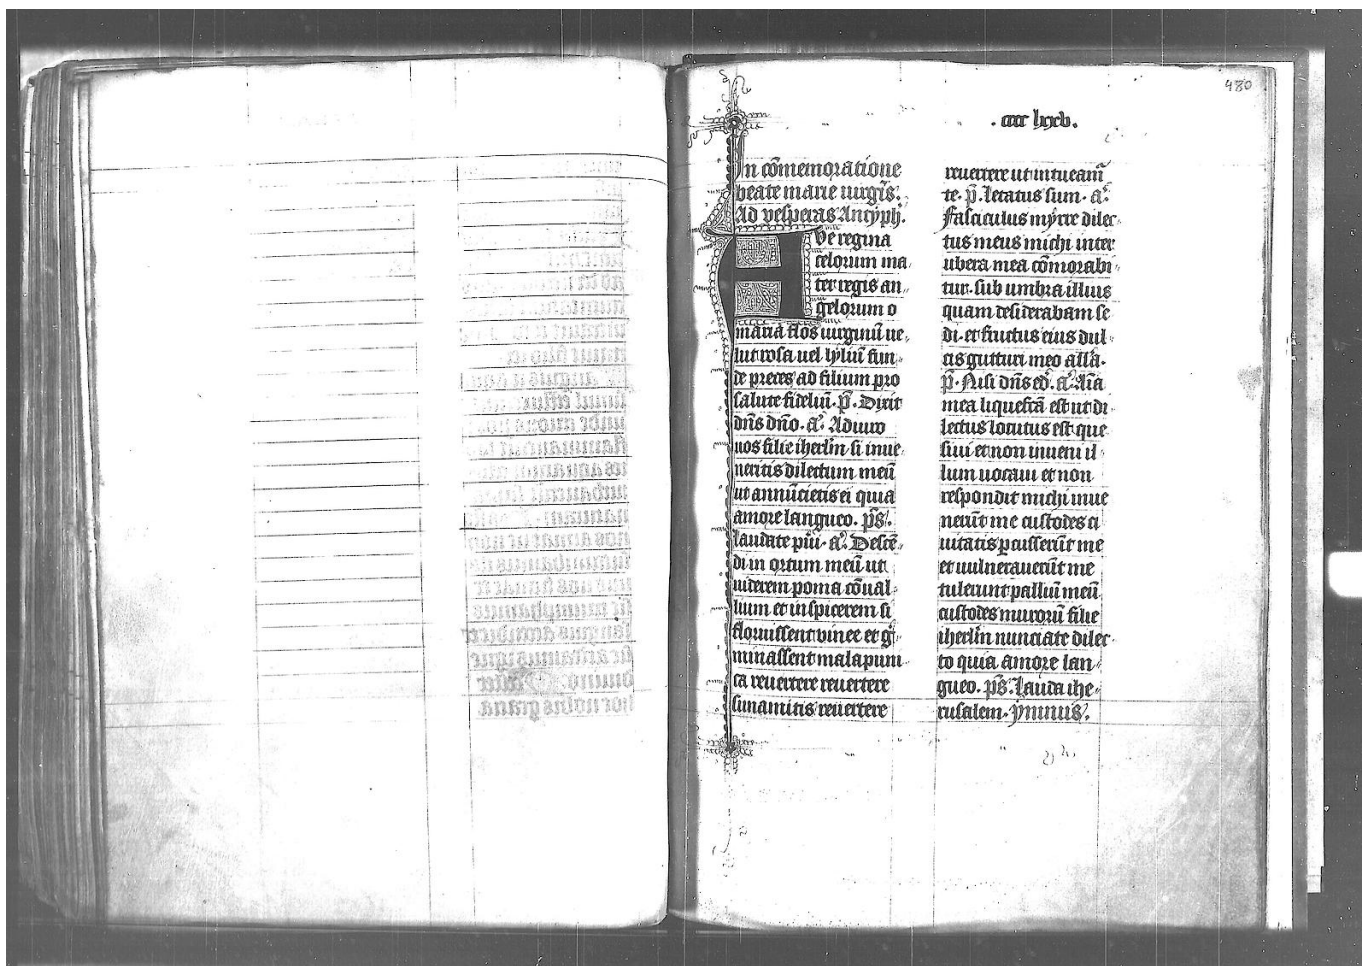 480
. cccc lxxv.
In cōmemoratione
beate marie uirgīs.
Ad vesperas Antyph̄.
Ave regina
celorum ma
ter regis an
gelorum o
maria flos uirginū ue
lut rosa uel lyliū fun
de preces ad filium pro
salute fideliū. p̄. Dixit
dn̄s dn̄o. a. Adiuro
uos filie iherlm̄ si inue
neritis dilectum meū
ut annūcietis ei quia
amore langueo. ps̄.
laudate piu᷑i. a. Descē
di in ortum meū ut
uiderem poma cōual
lium et inspicerem si
floruissent vinee et g̑
minassent mala puni
ca reuertere reuertere
sunamitis reuertere
reuertere ut intueam᷑
te. p̄. letatus sum. a.
Fasciculus myrre dilec
tus meus michi inter
ubera mea cōmorabi
tur. sub umbra illius
quam desiderabam se
di. et fructus eius dul
cis gutturi meo all̄a.
p̄. Nisi dn̄s ed̾. a. Aīa
mea liquefcā est ut di
lectus locutus est que
siui et non inueni il
lum uocaui et non
respondit michi inue
nerūt me custodes ci
uitatis ꝑcusserūt me
et uulnerauerūt me
tulerunt palliū meū
custodes murorū filie
iherlm̄ nunciate dilec
to quia amore lan
gueo. ps̄. Lauda ihe
rusalem. ymnus.